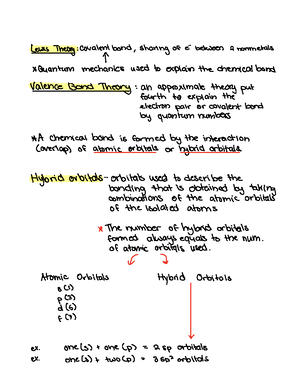 Lewis Theory: covalent bond, sharing of e⁻ between 2 nonmetals
*Quantum mechanics used to explain the chemical bond
Valence Bond Theory: an approximate theory put
fourth to explain the
electron pair or covalent bond
by quantum numbers
*A chemical bond is formed by the interaction
(overlap) of atomic orbitals or hybrid orbitals
Hybrid orbitals- orbitals used to describe the
bonding that is obtained by taking
combinations of the atomic orbitals
of the isolated atoms
* The number of hybrid orbitals
formed always equals to the num.
of atomic orbitals used.
Atomic Orbitals Hybrid Orbitals
s (1)
p (3)
d (5)
f (7)
ex. one(s) + one (p) = 2 sp orbitals
ex. one(s) + two(p) = 3 sp² orbitals